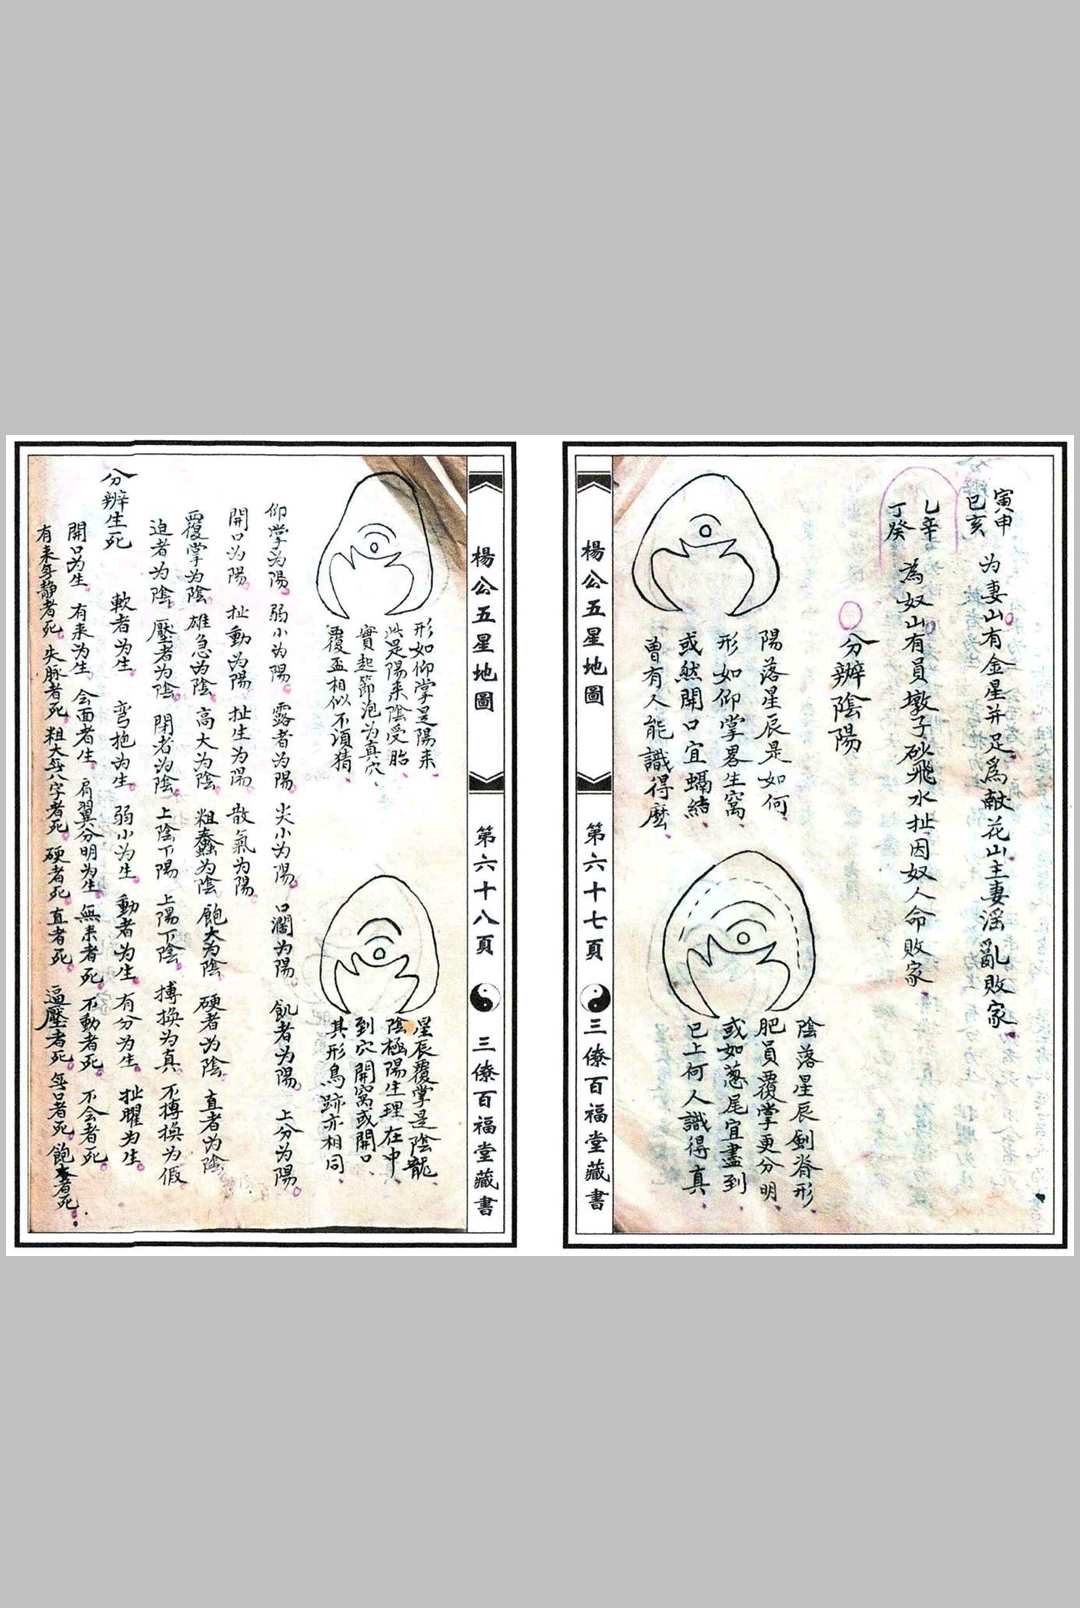 寅申
巳亥
为妻山有金星井足為献花山主妻淫亂敗家
乙辛
丁癸
為奴山有員墩子砂飛水扯因奴人命敗家
分辦陰陽
陽落星辰是如何
形如仰掌畧生窩
或然開口宜蝸結
曾有人能識得麽
陰落星辰劍脊形
肥員覆掌更分明
或如葱尾宜盡到
已上何人識得真
楊公五星地圖
第六十七頁
三僚百福堂藏書
楊公五星地圖
第六十八頁
三僚百福堂藏書
形如仰掌是陽来
此是陽来陰受胎
實起節泡为真穴
覆盃相似不須猜
星辰覆掌是陰龍
陰極陽生理在中
到穴開窩或開口
其形鳥跡亦相同
仰掌为陽 弱小为陽 露者为陽 尖小为陽 口濶为陽 飢者为陽 上分为陽
開口为陽 扯動为陽 扯生为陽 散氣为陽
覆掌为陰 雄急为陰 高大为陰 粗蠢为陰 飽大为陰 硬者为陰 直者为陰
迫者为陰 壓者为陰 閉者为陰 上陰下陽 上陽下陰 摶換为真 不摶換为假
分辦生死
軟者为生 弯抱为生 弱小为生 動者为生 有分为生 扯臞为生
開口为生 有来为生 会面者生 肩翼分明为生 無来者死 不動者死 不会者死
有来每静者死 失脉者死 粗大每八字者死 硬者死 直者死 逼壓者死 每口者死 飽者死